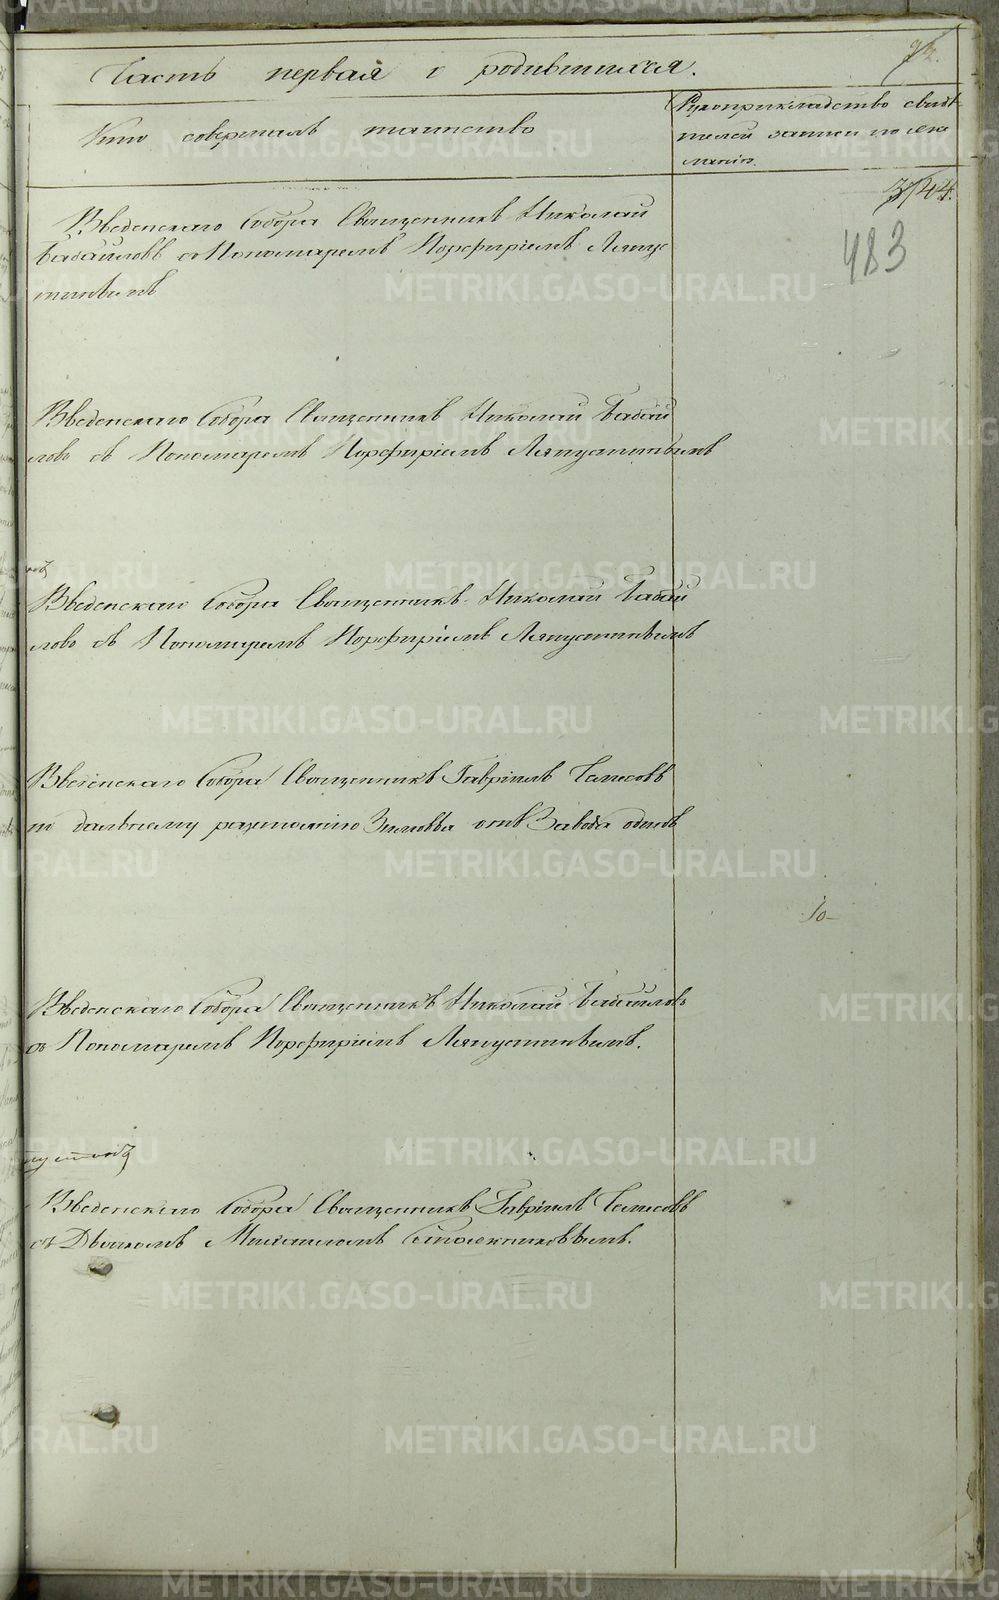 Часть первая о родившихся.
Кто совершалъ таинство
Рукоприкладство свидѣ
телей записи по же
ланію.
483
Введенскаго Собора Священникъ Николай
Бабайловъ съ Пономаремъ Порфиріемъ Ляпус
тинымъ
Введенскаго Собора Священникъ Николай Бабай
ловъ съ Пономаремъ Порфиріемъ Ляпустинымъ
Введенскаго Собора Священникъ Николай Бабай
ловъ съ Пономаремъ Порфиріемъ Ляпустинымъ
Введенскаго Собора Священникъ Гавріилъ
по дальнему разстоянію отъ Завода одинъ
10
Введенскаго Собора Священникъ Николай Бабайловъ
съ Пономаремъ Порфиріемъ Ляпустинымъ.
Введенскаго Собора Священникъ Гавріилъ
съ Дьякономъ Михаиломъ
METRIKI.GASO-URAL.RU